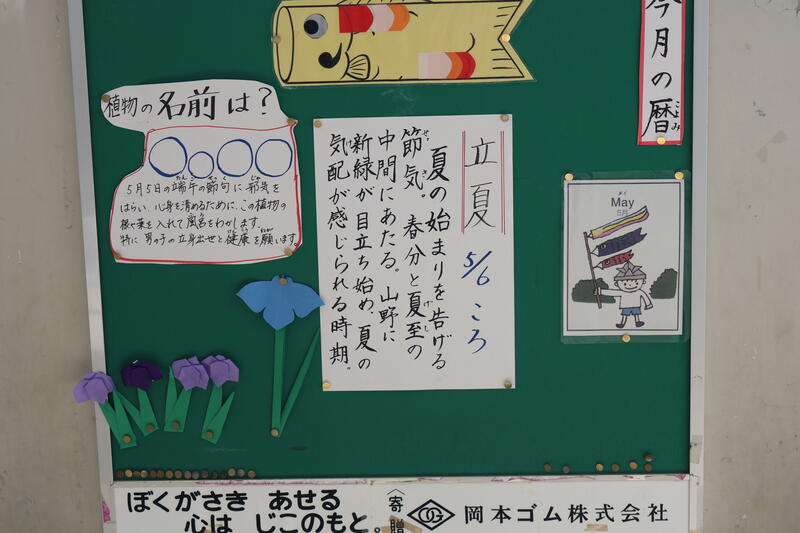 今月の暦
こよみ
植物の名前は？
5月5日の端午の節句に邪気を
はらい、心身を清めるために、この植物の
根や葉を入れて風呂をわかします。
特に男の子の立身出世と健康を願います。
立夏 5/6 ころ
夏の始まりを告げる
節気。春分と夏至の
中間にあたる。山野に
新緑が目立ち始め、夏の
気配が感じられる時期。
May
5月
ぼくがさき あせる
心は じこのもと。
〈寄贈〉
OG 岡本ゴム株式会社